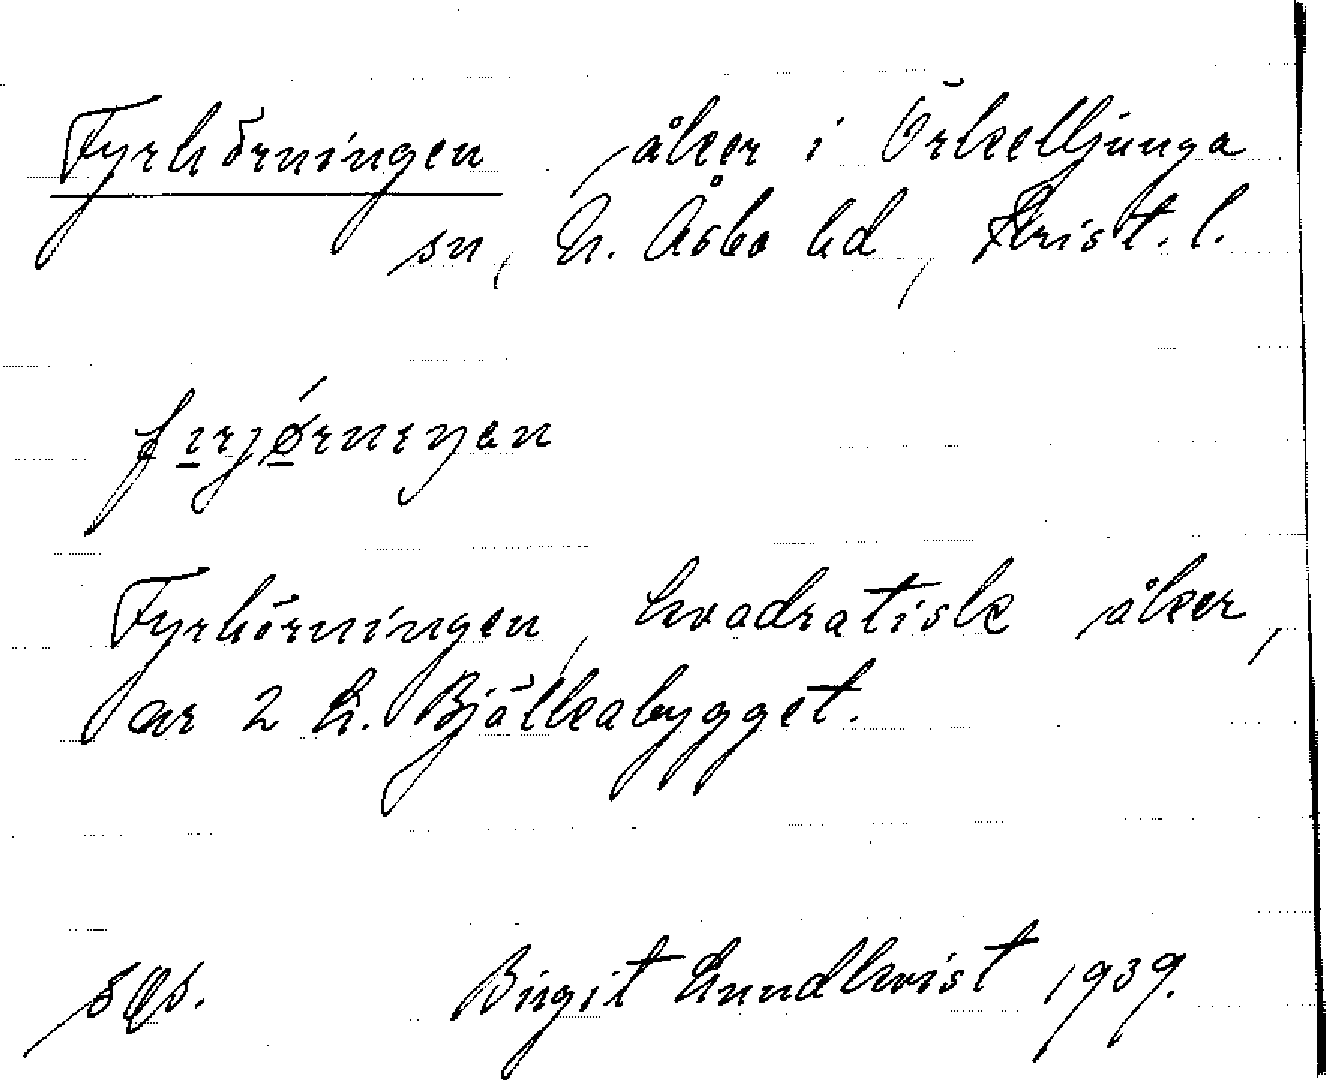 Fyrhörningen, åker i Örkelljunga
sn, N. Åsbo hd, Krist. l.
Fyrhörningen, kvadratisk åker,
av 2 h. Bjälkabygget.
Birgit Lundkvist 1939.